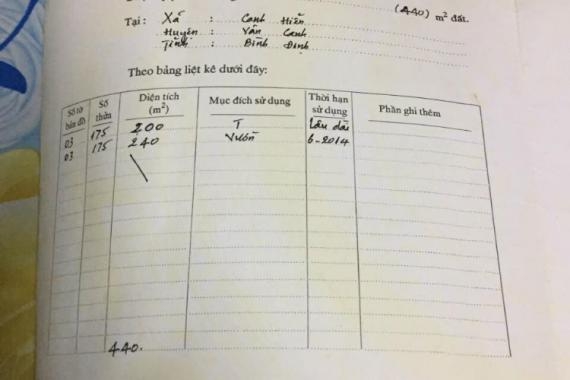 (440) m² đất.
Tại : Xã : Canh Hiển
Huyện : Vân Canh
Tỉnh : Bình Định
Theo bảng liệt kê dưới đây:
Số tờ bản đồ Số thửa Diện tích (m²) Mục đích sử dụng Thời hạn sử dụng Phần ghi thêm
03 175 200 T Lâu dài
03 175 240 Vườn 6-2014
440.